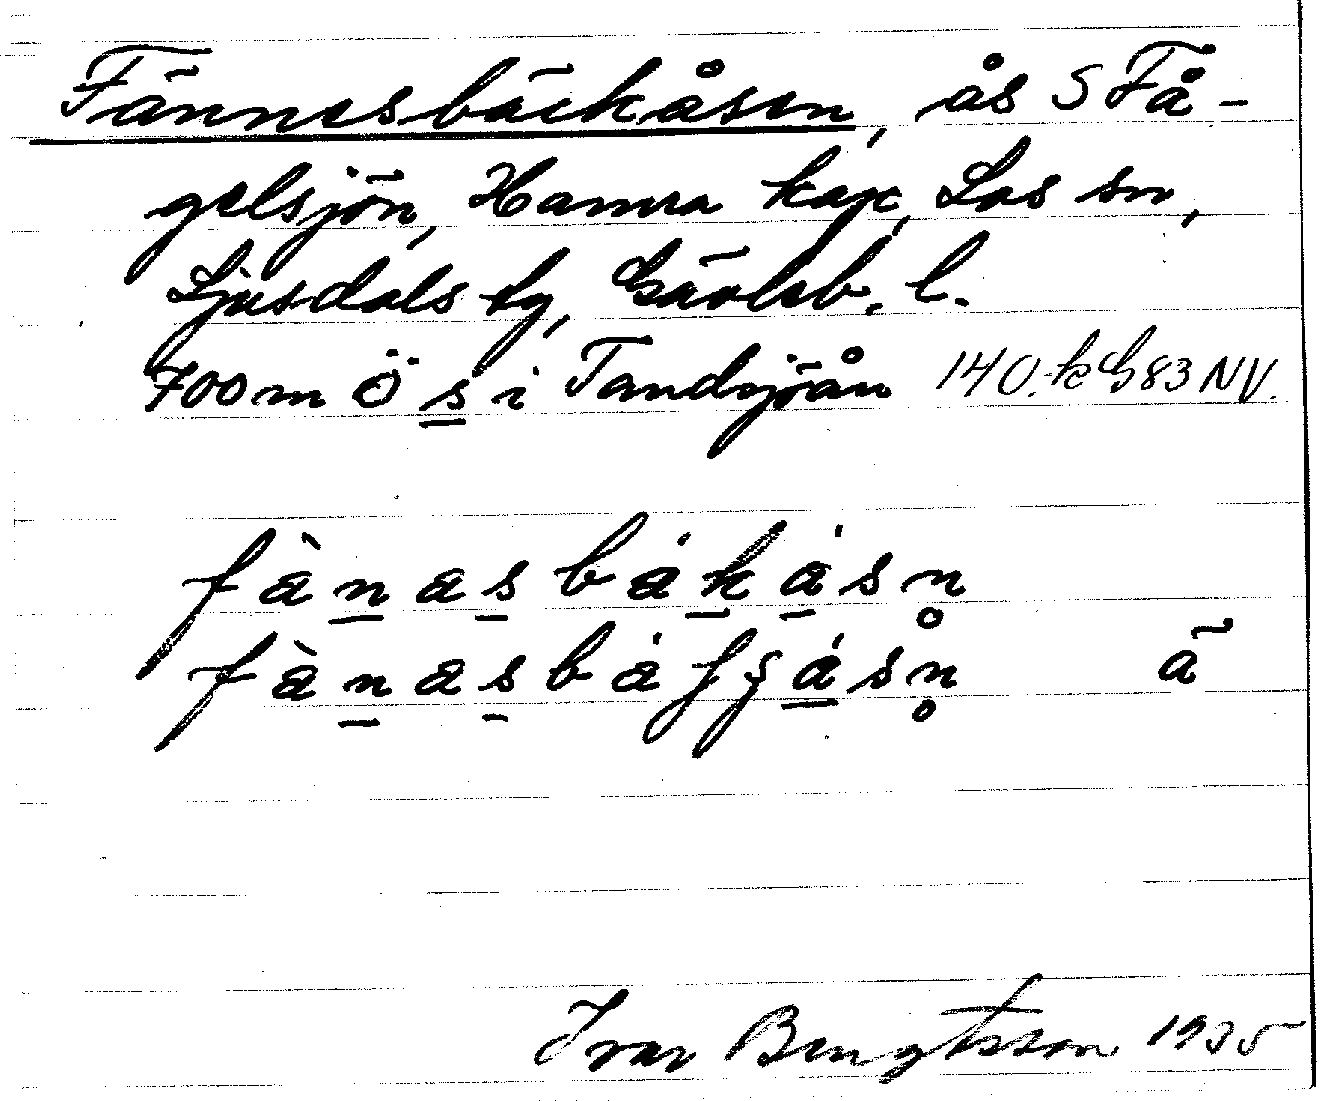 Fännesbäckåsen, ås S Få-
gelsjön, Hamra kap, Los sn,
Ljusdals tg, Gävleb. l.
700 m Ö s i Tandsjöån 140. kG 83 NV.
fànasbákásn̥
fànasbáfʂásn̥ ä
Ivar Bengtsson 1935